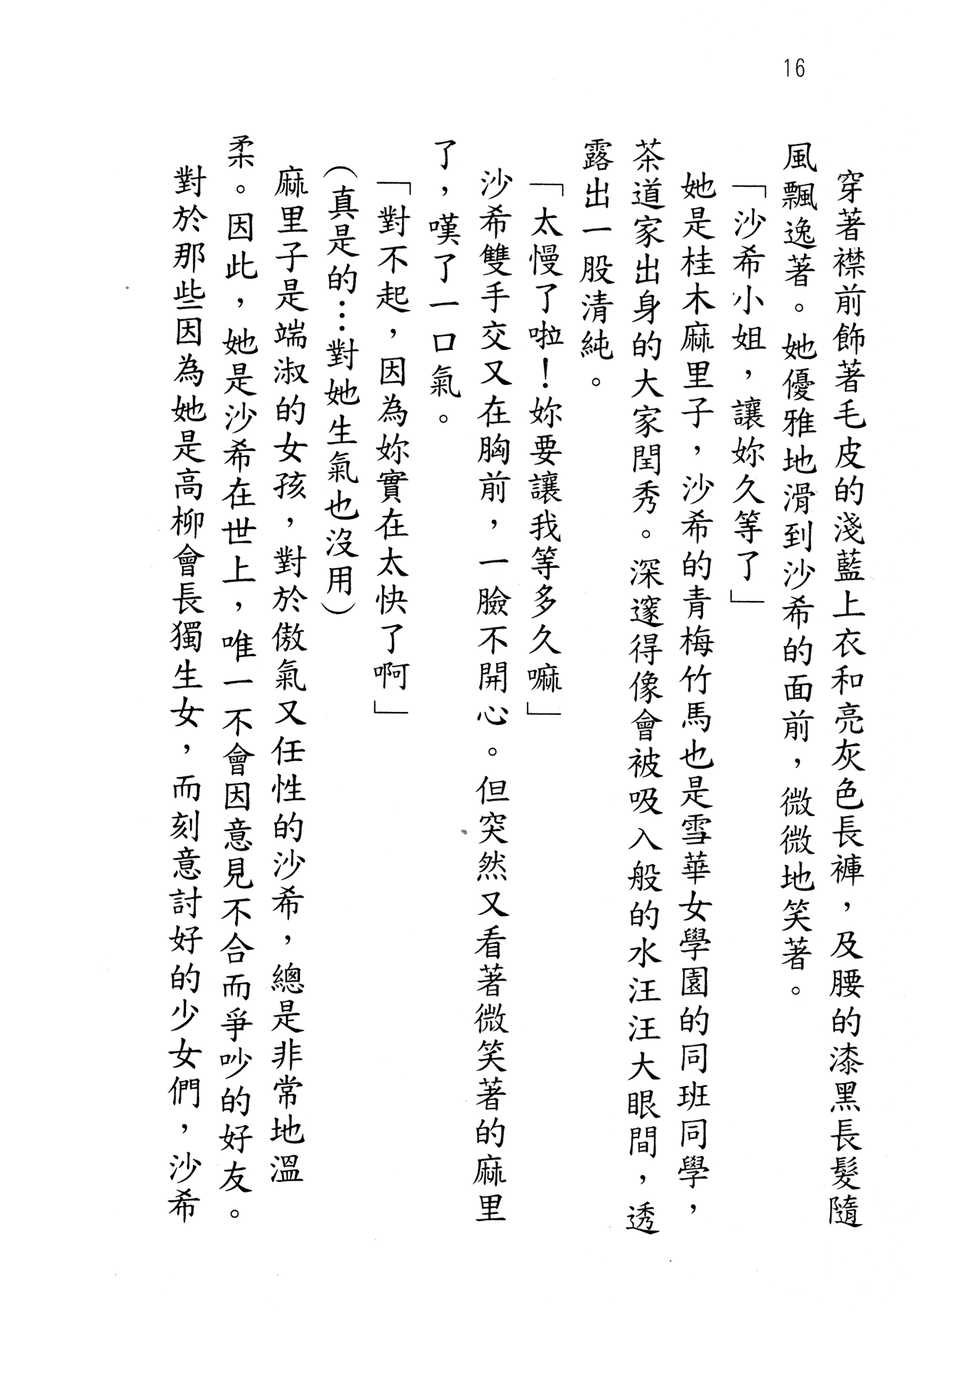 16
穿著襟前飾著毛皮的淺藍上衣和亮灰色長褲，及腰的漆黑長髮隨
風飄逸著。她優雅地滑到沙希的面前，微微地笑著。
「沙希小姐，讓妳久等了」
她是桂木麻里子，沙希的青梅竹馬也是雪華女學園的同班同學，
茶道家出身的大家閨秀。深邃得像會被吸入般的水汪汪大眼間，透
露出一股清純。
「太慢了啦！妳要讓我等多久嘛」
沙希雙手交叉在胸前，一臉不開心。但突然又看著微笑著的麻里
了，嘆了一口氣。
「對不起，因為妳實在太快了啊」
（真是的…對她生氣也沒用）
麻里子是端淑的女孩，對於傲氣又任性的沙希，總是非常地溫
柔。因此，她是沙希在世上，唯一不會因意見不合而爭吵的好友。
對於那些因為她是高柳會長獨生女，而刻意討好的少女們，沙希